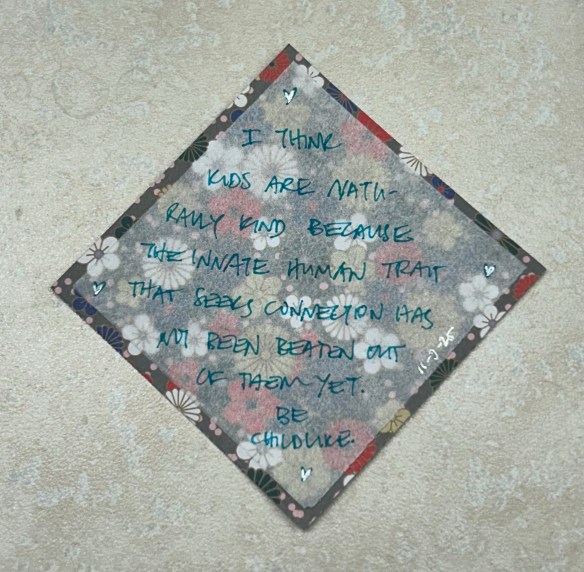 I THINK
KIDS ARE NATU-
RALLY KIND BECAUSE
THE INNATE HUMAN TRAIT
THAT SEEKS CONNECTION HAS
NOT BEEN BEATEN OUT
OF THEM YET.
BE
CHILDLIKE.